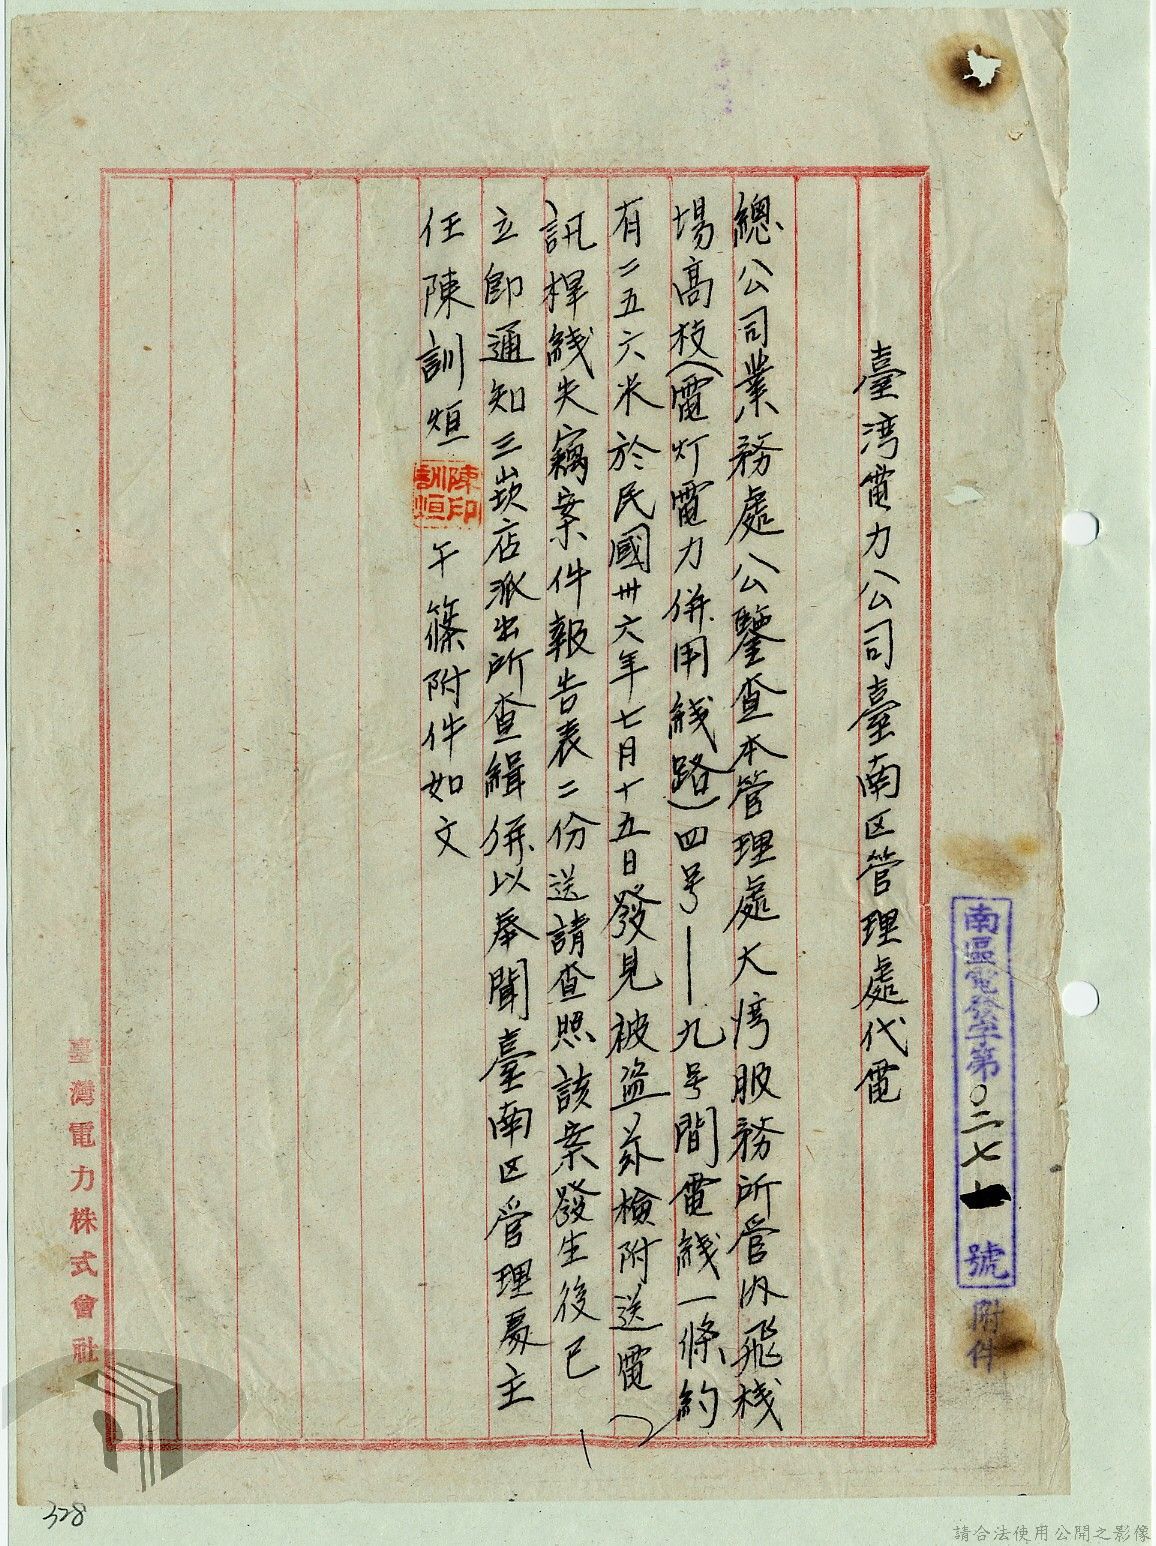 南區電發字第〇二七號
附件
臺湾電力公司臺南区管理處代電
總公司業務處公鑒查本管理處大湾服務所管内飛機
場高枝(電灯電力併用綫路)四号——九号間電綫一條約
有二五六米於民國卅六年七月十五日發見被盗茲檢附送電
訊桿綫失竊案件報告表二份送請查照該案發生後已
立即通知三崁店派出所查緝併以奉聞臺南区管理處主
任陳訓烜
陳印訓烜
午篠附件如文
臺灣電力株式會社
328
請合法使用公開之影像